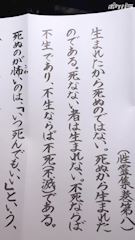 （性霊集表裳）
生まれたから死ぬのではない。死ぬから生まれた
のである。死なない者は生まれない。不死ならば
不生であり、不生ならば不死（不滅）である。
死ぬのが怖いのは、「いつ死んでもいい」という、